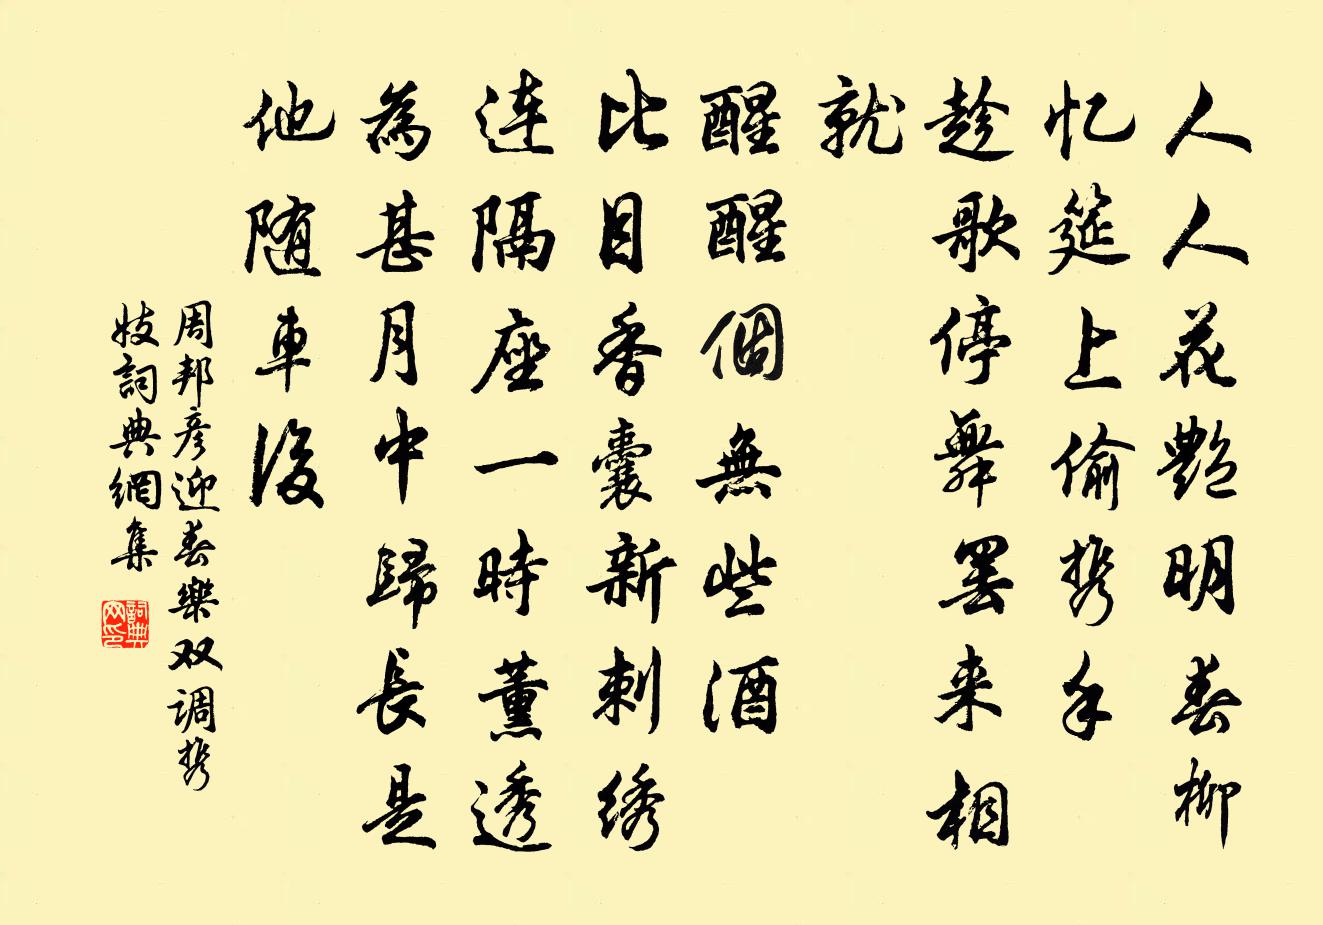 人人花艷明春柳
忆筵上偷携手
趁歌停舞罢来相
就
醒醒個無些酒
比目香囊新刺绣
连隔座一時薰透
為甚月中歸長是
他随車後
周邦彦迎春樂双调携
妓詞典網集
詞典网印